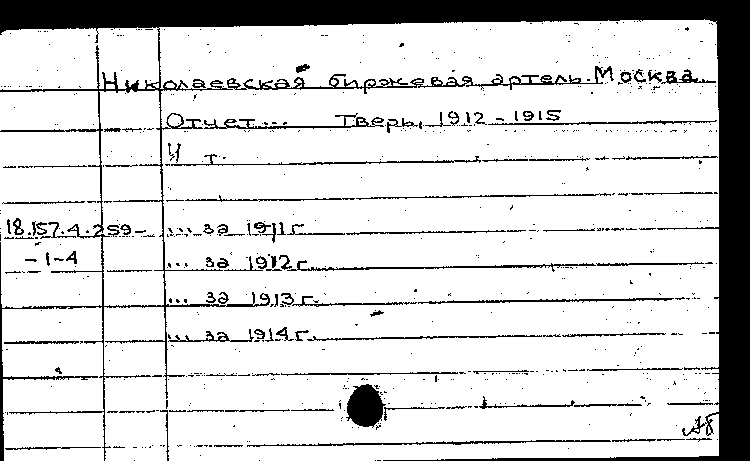 Николаевская биржевая артель. Москва.
Отчет... Тверь, 1912 - 1915
4 т.
18.157.4.259- ... за 1911 г.
- 1-4 ... за 1912 г.
... за 1913 г.
... за 1914 г.